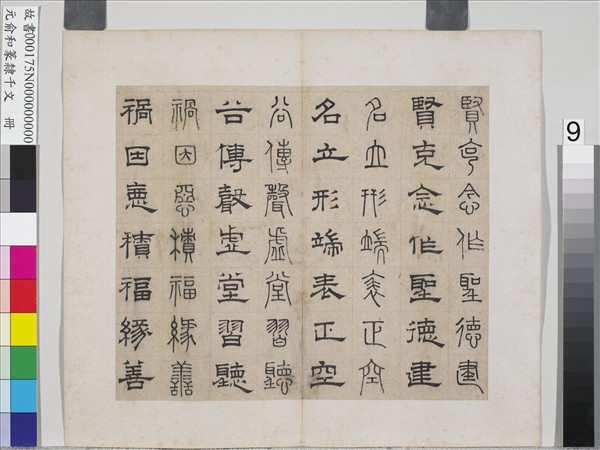 賢克念作聖德建
賢克念作聖德建
名立形端表正空
名立形端表正空
谷傳聲虛堂習聽
谷傳聲虛堂習聽
禍因惡積福緣善
禍因惡積福緣善
故書000175N000000000
元俞和篆隸千文 冊
9